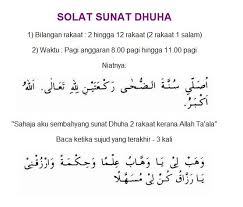 SOLAT SUNAT DHUHA
1) Bilangan rakaat : 2 hingga 12 rakaat (2 rakaat 1 salam)
2) Waktu : Pagi anggaran 8.00 pagi hingga 11.00 pagi
Niatnya:
اُصَلِّي سُنَّةَ الضُّحَى رَكْعَتَيْنِ لِلّٰهِ تَعَالَى. اَللهُ
اَكْبَرُ.
"Sahaja aku sembahyang sunat Dhuha 2 rakaat kerana Allah Ta'ala"
Baca ketika sujud yang terakhir - 3 kali
وَهَبْ لِيْ يَا وَهَّابُ عِلْمًا وَحِكْمَةً وَارْزُقْنِيْ
يَا رَزَّاقُ كُنْ لِيْ مُسَهِّلًا